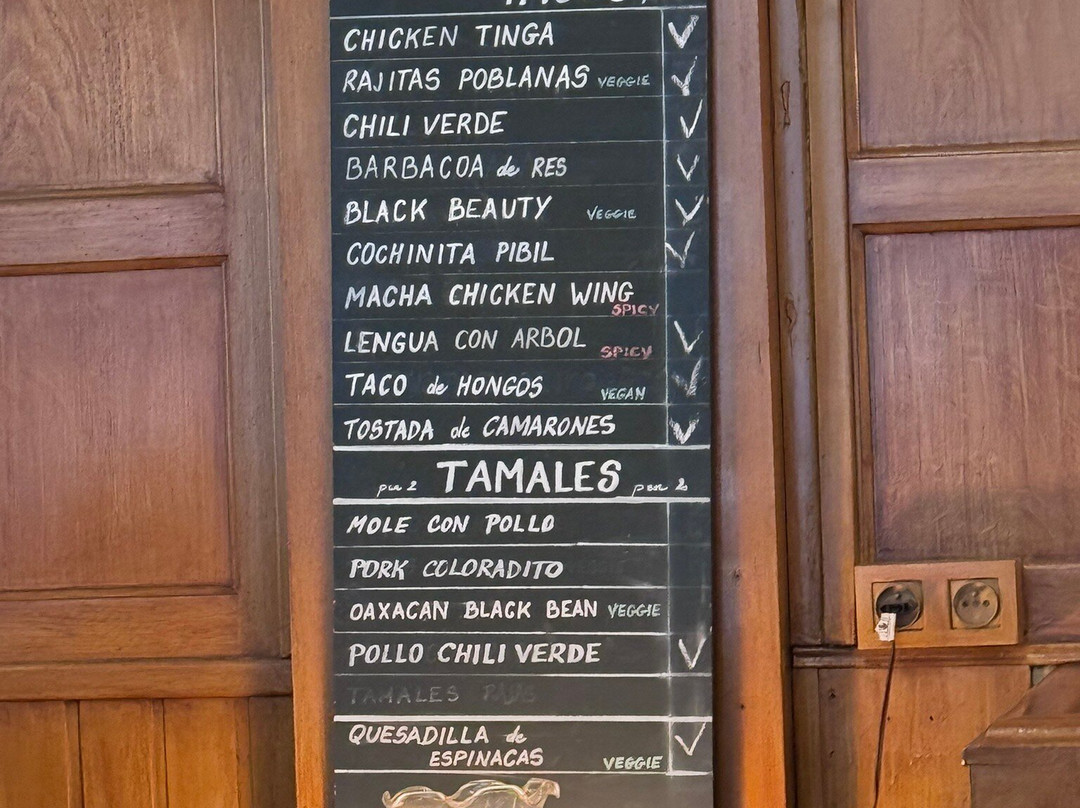 CHICKEN TINGA
RAJITAS POBLANAS VEGGIE
CHILI VERDE
BARBACOA de RES
BLACK BEAUTY VEGGIE
COCHINITA PIBIL
MACHA CHICKEN WING
SPICY
LENGUA CON ARBOL
SPICY
TACO de HONGOS VEGAN
TOSTADA de CAMARONES
TAMALES
MOLE CON POLLO
PORK COLORADITO
OAXACAN BLACK BEAN VEGGIE
POLLO CHILI VERDE
TAMALES
QUESADILLA de
ESPINACAS VEGGIE